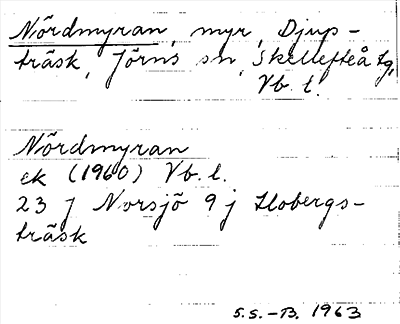 Nördmyran, myr, Djup-
träsk, Jörns sn, Skellefteå tg,
Vb. l.
Nördmyran
ek (1960) Vb. l.
23 J Norsjö 9 j Slobergs-
träsk
S.S.-B. 1963